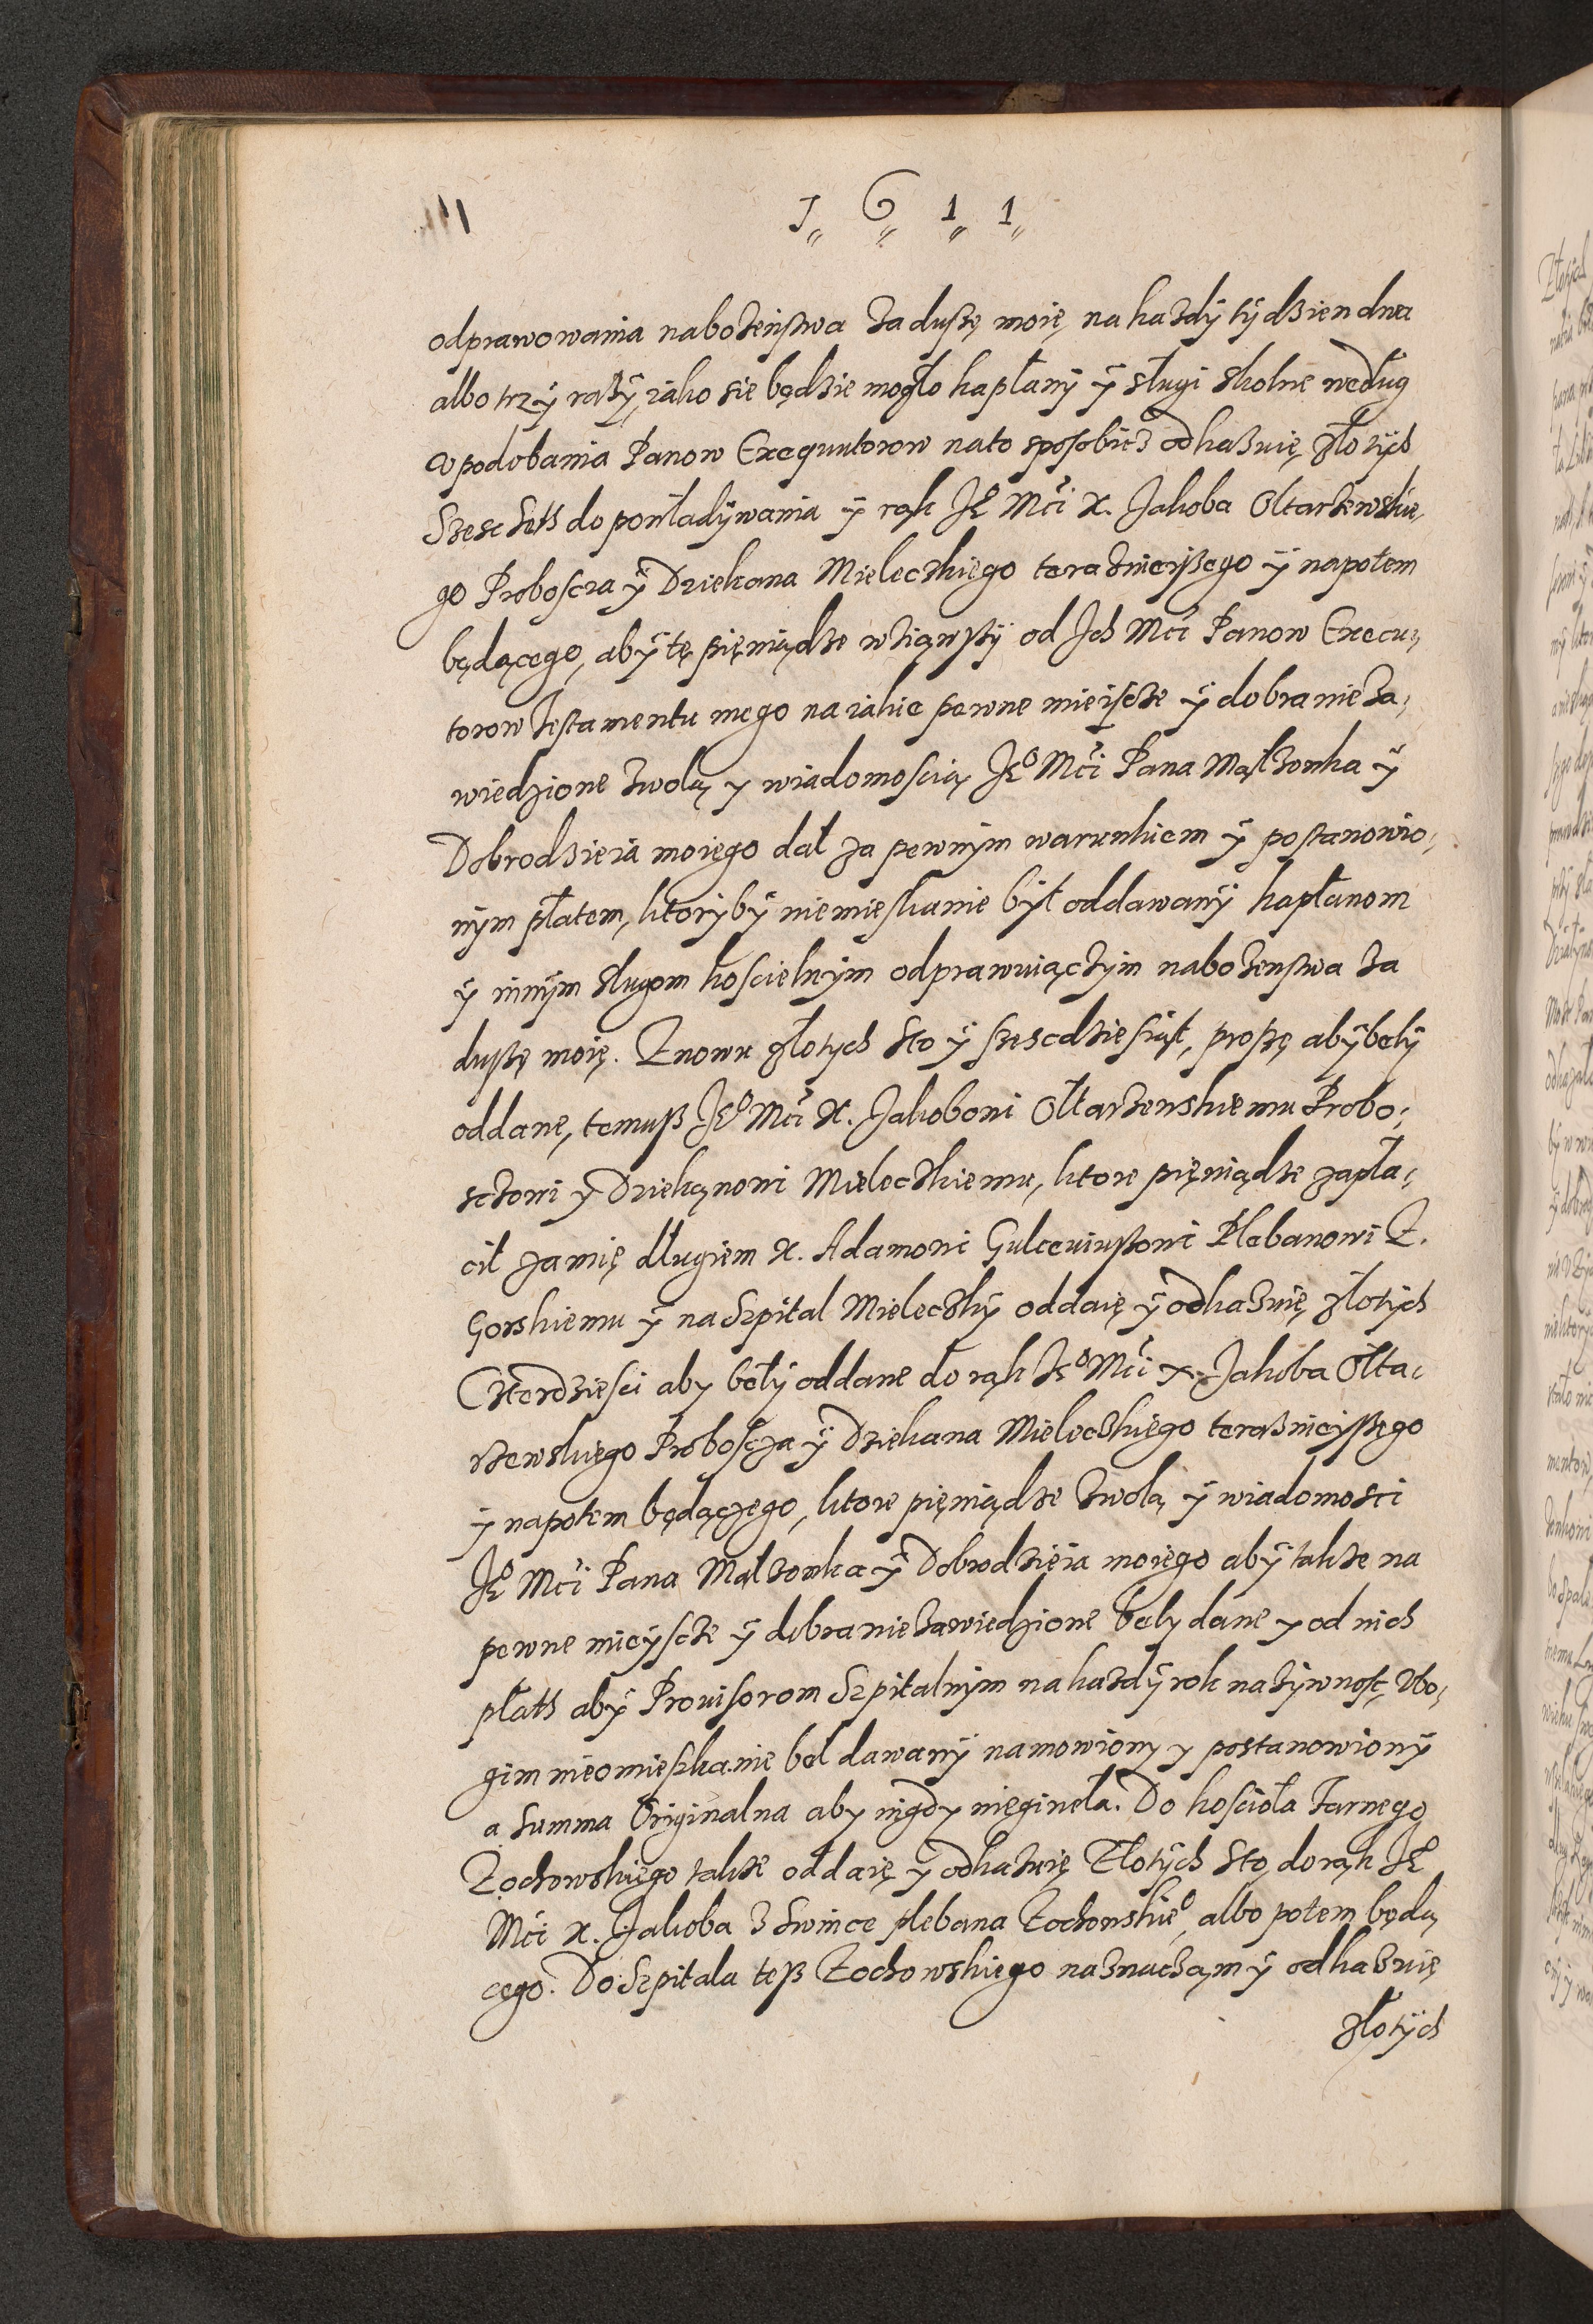 1611
odprawowania nabożeństwa za duszę moię, na każdÿ tÿdzien dwa
albo trzÿ razÿ, iako sie będzie mogło kapłanÿ ÿ sługi skolne według
upodobania Panow Exequutorow na to sposobić odkazuię złotÿch
Szesc set do poriładÿwania ÿ rąk Je⁰ Mci X. Jakoba Ołtarzewskie,
go Proboscza ÿ Dziekana Mieleczkiego teraznieÿszego ÿ napotem
będącego, abÿ tę pięniądze wziąwszÿ od Ich Mci Panow Execu,
torow testamentu mego na iakie pewne mieiscze ÿ dobra nieza,
wiedzione z wolą y wiadomoscią Je⁰ Mci Pana Małzonka ÿ
Dobrodzieia moiego dał za pewnÿm warunkiem ÿ postanowio,
nÿm płatem, ktorÿbÿ niemieskanie bÿł oddawanÿ kapłanom
ÿ innÿm sługom koscielnÿm odprawuiączÿm nabozenstwa za
duszę moię. Znowu złotych sto ÿ szescdziesiąt, proszę abÿ belÿ
oddane, temuß Je⁰ Mci X. Jakobowi Ołtarzewskiemu Probo,
sczowi ÿ Dziekąnowi Mieleczkiemu, ktore pięniądze zapła,
cił zamię długiem X. Adamowi Gulceviuszowi Plebanowi Z.
Gorskiemu ÿ na Szpital Mieleczkÿ oddaię ÿ odkazuię złotÿch
Czterdziesci aby belÿ oddane do rąk Je⁰ Mci X. Jakoba Ołta,
rzewskiego Proboscza ÿ Dziekana Mieleczkiego teraznieÿszego
ÿ napotem będączego, ktore pięniądze z wolą ÿ wiadomosci
Je⁰ Mci Pana Małzonka ÿ Dobrodzieia moiego abÿ takze na
pewne mieÿscze ÿ dobra niezawiedzione bely dane y od nich
płath abÿ Prouisorom Szpitalnÿm na kazdÿ rok na zÿwnosc Vbo,
gim nieomieszkanie beł dawanÿ namowiony y postanowionÿ
a summa Originalna aby nigdy nieginela. Do kosciola Farnego
Zochowskiego takze oddaię ÿ odkazuię Złotÿch sto, do rąk Je⁰
Mci X. Jakoba z Swince plebana Zochowskie⁰, albo potem będą,
cego. Do Szpitala teß Zochowskiego naznaczam ÿ odkazuię
złotÿch